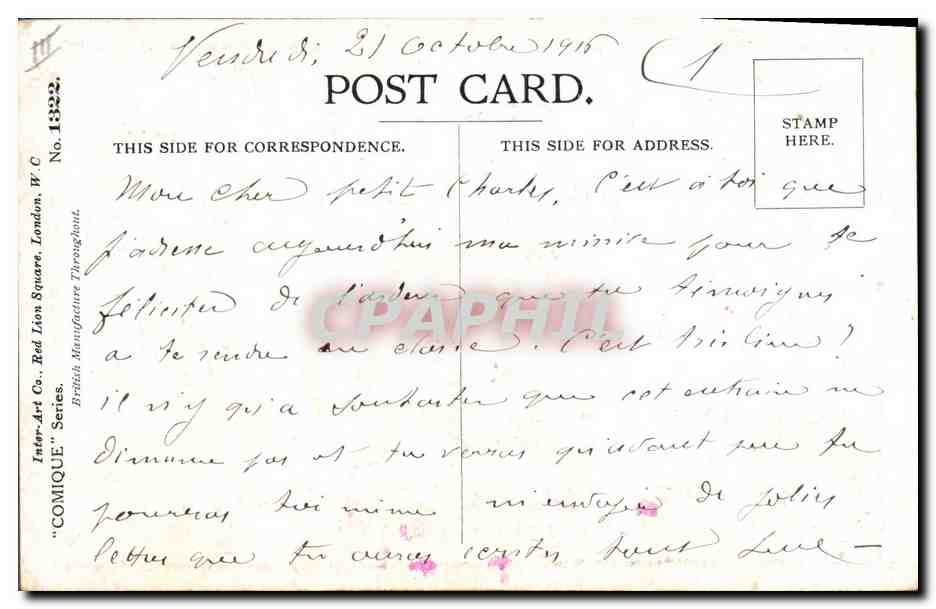 III
Vendredi, 21 Octobre 1916
1
POST CARD.
THIS SIDE FOR CORRESPONDENCE.
THIS SIDE FOR ADDRESS.
STAMP
HERE.
Mon cher petit Charles, C'est à toi que
j'adresse aujourd'hui ma missive pour te
féliciter de l'ardeur que tu témoignes
a te rendre en classe. C'est très bien !
il n'y qu'a souhaiter que cet entrain ne
diminue pas et tu verras qu'avant peu tu
pourras toi même m'envoyer de jolies
lettres que tu auras écrites tout seul —
Inter-Art Co., Red Lion Square, London, W.C
"COMIQUE" Series. No. 1322.
British Manufacture Throughout.
CPAPHIL